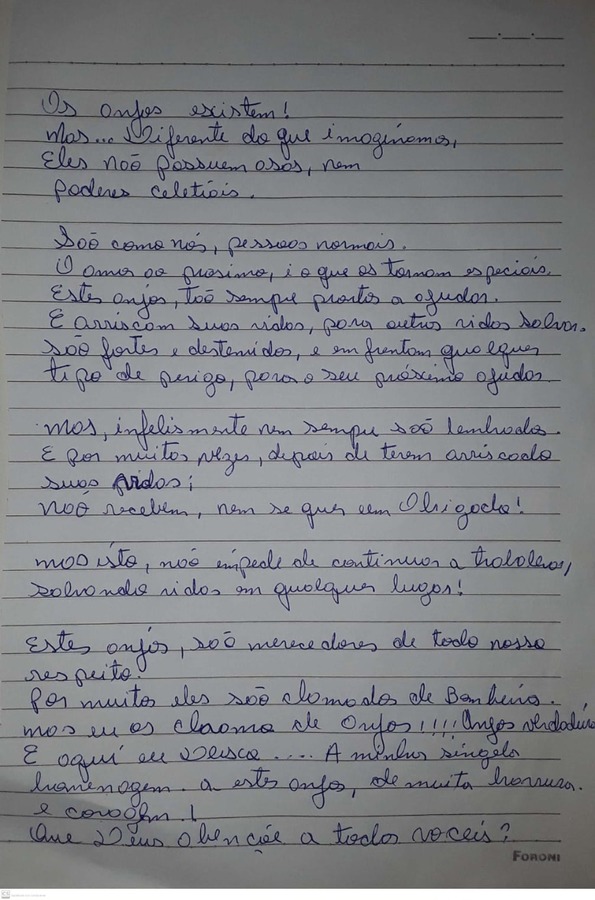 Os anjos existem!
Mas... Diferente do que imaginamos,
Eles não possuem asas, nem
poderes celetiais.
São como nós, pessoas normais.
O amor ao prosimo, é o que os tornam especiais.
Estes anjos, tão sempre prontos a ajudar.
E arriscam suas vidas, para outras vidas salvar.
são fortes e destemidos, e em frentam qualquer
tipo de perigo, para o seu próximo ajudar.
mas, infelismente nem sempre são lembrados.
E por muitas vezes, depois de terem arriscado
suas vidas;
não recebem, nem se quer um Obrigado!
mas isto, não empede de continuar a trabalhar,
salvando vidas em qualquer lugar!
Estes anjos, são merecedores de todo nosso
respeito.
Por muitos eles são clamados de Bombeiro.
mas eu os chamo de Anjos!!!! Anjos verdadeiros
E aqui eu Deixo.... A minha singela
homenagem. a estes anjos, de muita honrura.
e coragem.!
Que Deus abençõe a todos voceis?
FORONI